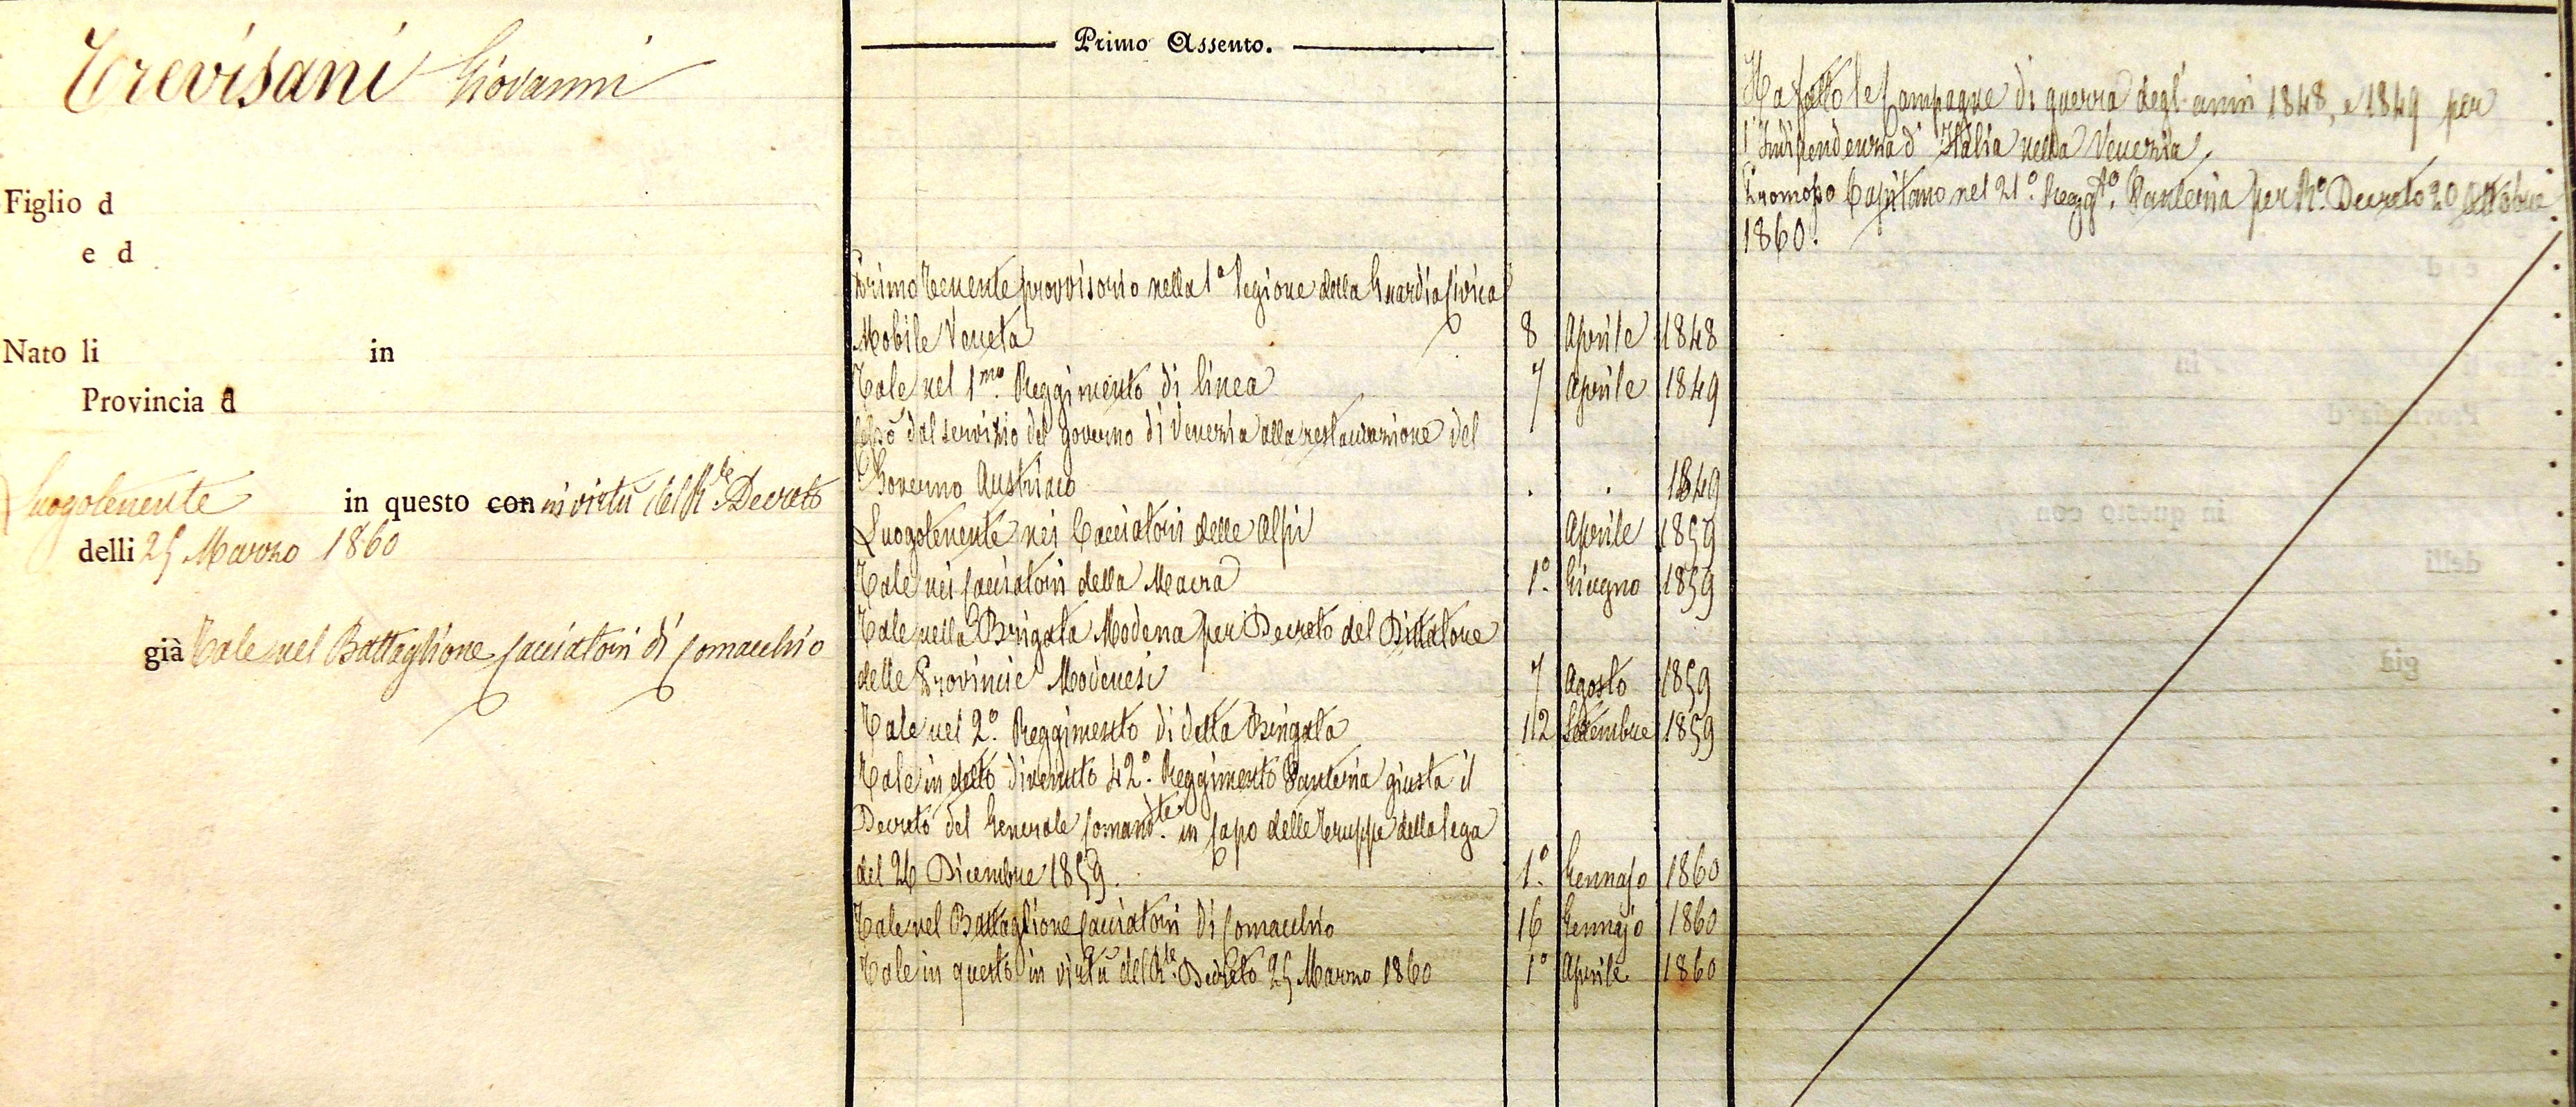 Trevisani Giovanni
Figlio d
e d
Nato li in
Provincia d
Luogotenente in questo con in virtù del R.le Decreto
delli 25 Marzo 1860
già Tale nel Battaglione Cacciatori di Comacchio
Primo Assento.
Primo Tenente provvisorio nella 1ª legione della Guardia Civica
Mobile Veneta 8 Aprile 1848
Tale nel 1.mo Reggimento di linea 7 Aprile 1849
Cessò dal servizio del governo di Venezia alla restaurazione del
Governo Austriaco . . 1849
Luogotenente nei Cacciatori delle Alpi Aprile 1859
Tale nei Cacciatori della Macra 1º. Giugno 1859
Tale nella Brigata Modena per Decreto del Dittatore
delle Provincie Modenesi 7 Agosto 1859
Tale nel 2º. Reggimento di detta Brigata 12 Settembre 1859
Tale in detto divenuto 42º. Reggimento Fanteria giusta il
Decreto del Generale Comand.te in Capo delle truppe della lega
del 26 Dicembre 1859. 1º. Gennajo 1860
Tale nel Battaglione Cacciatori di Comacchio 16 Gennajo 1860
Tale in questo in virtù del R.le Decreto 25 Marzo 1860 1º Aprile 1860
Ha fatto le Campagne di guerra degl'anni 1848, e 1849 per
l'Indipendenza d'Italia nella Venezia.
Promosso Capitano nel 21º. Regg.to Fanteria per R.º Decreto 20 Ottobre
1860.